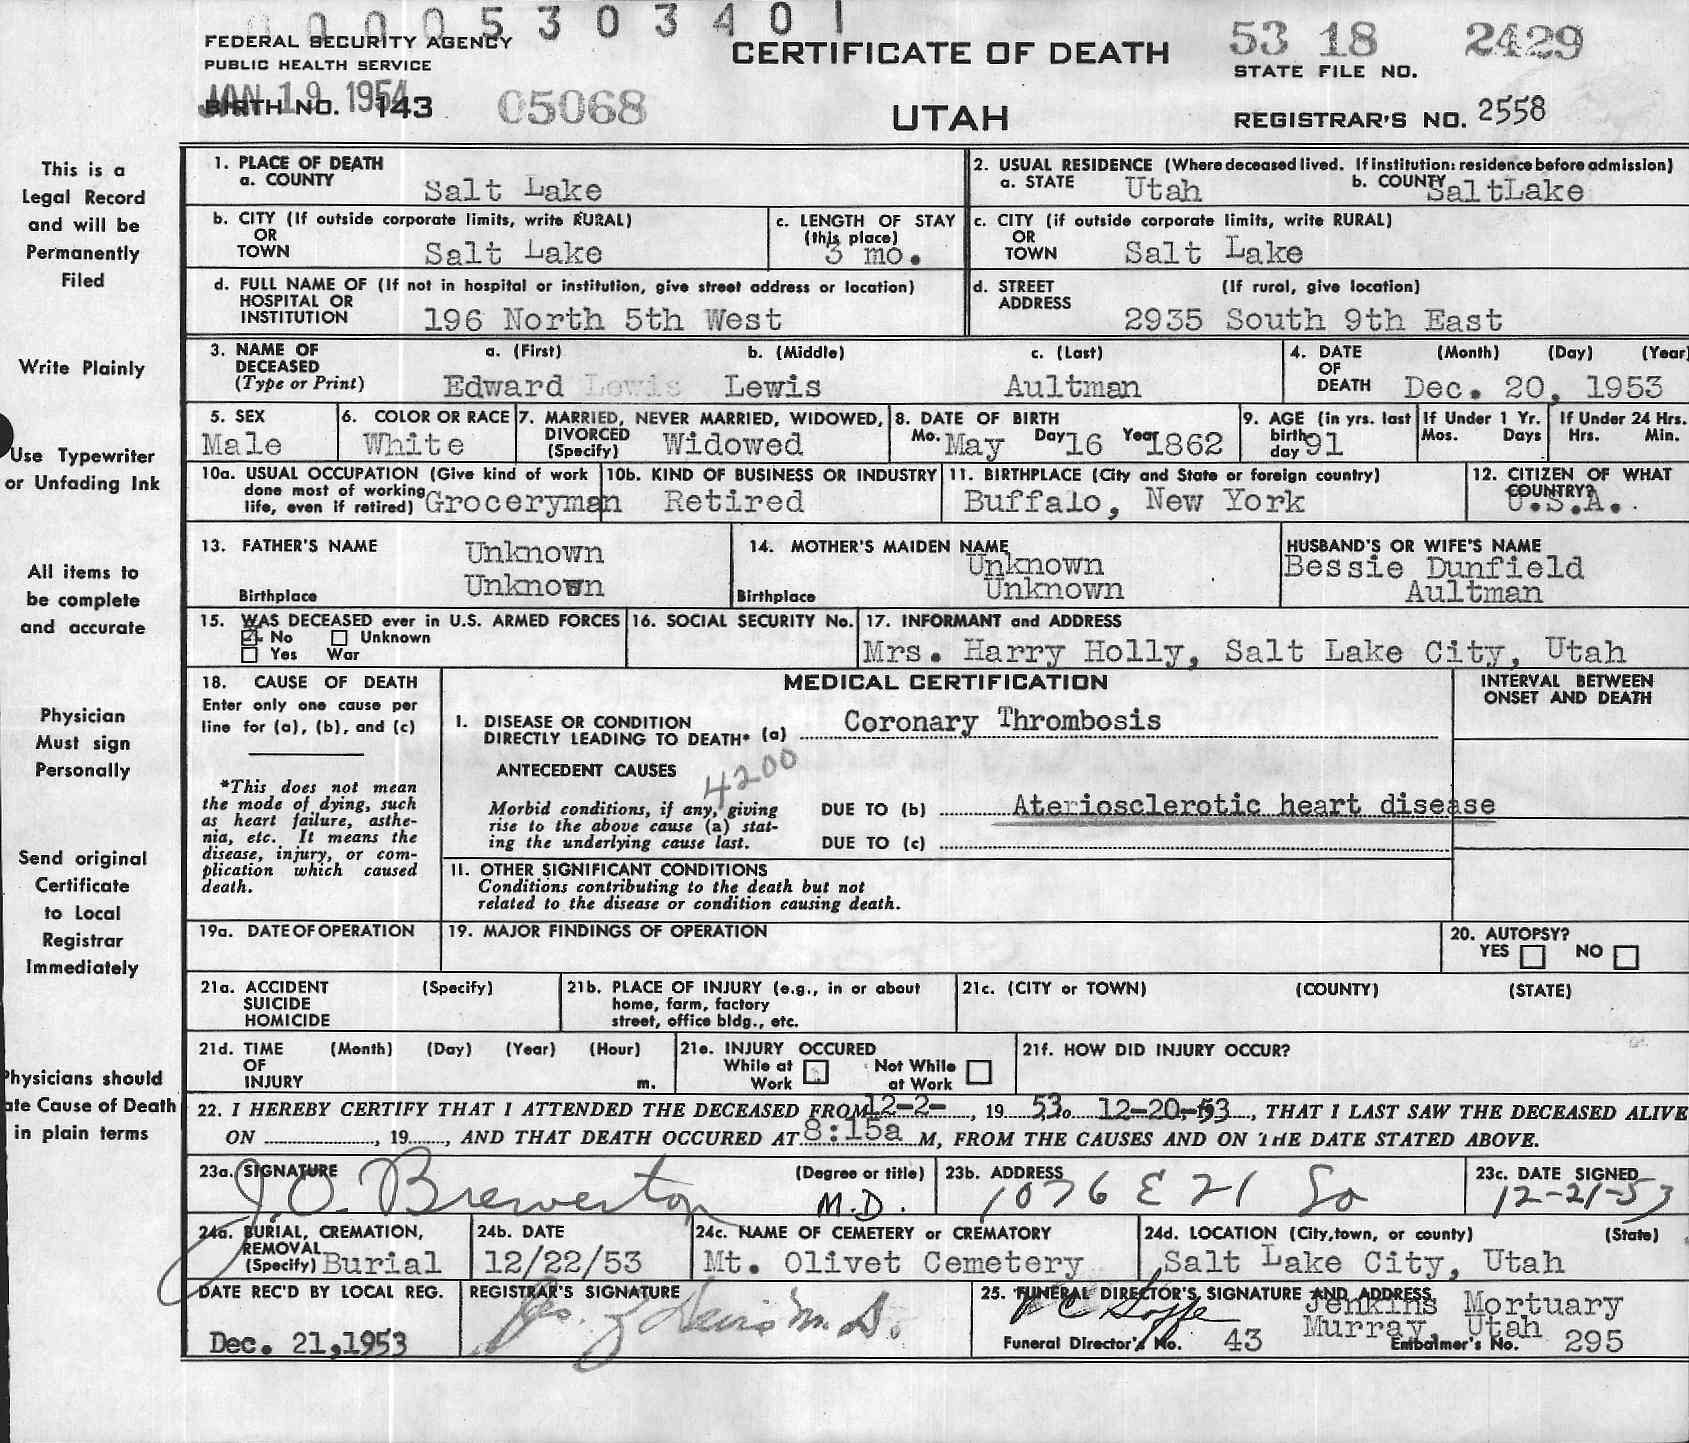 0 0 0 0 5 3 0 3 4 0 1
FEDERAL SECURITY AGENCY
PUBLIC HEALTH SERVICE
CERTIFICATE OF DEATH
53 18 2429
STATE FILE NO.
JAN 19 1954
BIRTH NO. 143
05068
UTAH
REGISTRAR'S NO. 2558
This is a
Legal Record
and will be
Permanently
Filed
Write Plainly
Use Typewriter
or Unfading Ink
All items to
be complete
and accurate
Physician
Must sign
Personally
Send original
Certificate
to Local
Registrar
Immediately
Physicians should
ate Cause of Death
in plain terms
1. PLACE OF DEATH
a. COUNTY Salt Lake
2. USUAL RESIDENCE (Where deceased lived. If institution: residence before admission)
a. STATE Utah b. COUNTY SaltLake
b. CITY (If outside corporate limits, write RURAL)
OR
TOWN Salt Lake
c. LENGTH OF STAY
(this place)
3 mo.
c. CITY (if outside corporate limits, write RURAL)
OR
TOWN Salt Lake
d. FULL NAME OF (If not in hospital or institution, give street address or location)
HOSPITAL OR
INSTITUTION 196 North 5th West
d. STREET (If rural, give location)
ADDRESS
2935 South 9th East
3. NAME OF a. (First) b. (Middle) c. (Last)
DECEASED
(Type or Print) Edward Lewis Lewis Aultman
4. DATE (Month) (Day) (Year)
OF
DEATH Dec. 20, 1953
5. SEX
Male
6. COLOR OR RACE
White
7. MARRIED, NEVER MARRIED, WIDOWED,
DIVORCED
(Specify) Widowed
8. DATE OF BIRTH
Mo. May Day 16 Year 1862
9. AGE (in yrs. last
birth
day 91
If Under 1 Yr.
Mos. Days
If Under 24 Hrs.
Hrs. Min.
10a. USUAL OCCUPATION (Give kind of work
done most of working
life, even if retired) Groceryman
10b. KIND OF BUSINESS OR INDUSTRY
Retired
11. BIRTHPLACE (City and State or foreign country)
Buffalo, New York
12. CITIZEN OF WHAT
COUNTRY?
U.S.A.
13. FATHER'S NAME Unknown
Birthplace Unknown
14. MOTHER'S MAIDEN NAME
Unknown
Birthplace Unknown
HUSBAND'S OR WIFE'S NAME
Bessie Dunfield
Aultman
15. WAS DECEASED ever in U.S. ARMED FORCES
No Unknown
Yes War
16. SOCIAL SECURITY No.
17. INFORMANT and ADDRESS
Mrs. Harry Holly, Salt Lake City, Utah
18. CAUSE OF DEATH
Enter only one cause per
line for (a), (b), and (c)
*This does not mean
the mode of dying, such
as heart failure, asthe-
nia, etc. It means the
disease, injury, or com-
plication which caused
death.
MEDICAL CERTIFICATION
INTERVAL BETWEEN
ONSET AND DEATH
I. DISEASE OR CONDITION
DIRECTLY LEADING TO DEATH* (a) Coronary Thrombosis
ANTECEDENT CAUSES
4200
Morbid conditions, if any, giving
rise to the above cause (a) stat-
ing the underlying cause last.
DUE TO (b) Ateriosclerotic heart disease
DUE TO (c)
II. OTHER SIGNIFICANT CONDITIONS
Conditions contributing to the death but not
related to the disease or condition causing death.
19a. DATE OF OPERATION
19. MAJOR FINDINGS OF OPERATION
20. AUTOPSY?
YES NO
21a. ACCIDENT (Specify)
SUICIDE
HOMICIDE
21b. PLACE OF INJURY (e.g., in or about
home, farm, factory
street, office bldg., etc.
21c. (CITY or TOWN) (COUNTY) (STATE)
21d. TIME (Month) (Day) (Year) (Hour)
OF
INJURY m.
21e. INJURY OCCURED
While at Not While
Work at Work
21f. HOW DID INJURY OCCUR?
22. I HEREBY CERTIFY THAT I ATTENDED THE DECEASED FROM 12-2-, 19 53o 12-20,-53, THAT I LAST SAW THE DECEASED ALIVE
ON , 19 , AND THAT DEATH OCCURED AT 8:15a M, FROM THE CAUSES AND ON THE DATE STATED ABOVE.
23a. SIGNATURE (Degree or title)
J. O. Brewerton M.D.
23b. ADDRESS
1076 E 21 So
23c. DATE SIGNED
12-21-53
24a. BURIAL, CREMATION,
REMOVAL
(Specify) Burial
24b. DATE
12/22/53
24c. NAME OF CEMETERY or CREMATORY
Mt. Olivet Cemetery
24d. LOCATION (City, town, or county) (State)
Salt Lake City, Utah
DATE REC'D BY LOCAL REG.
Dec. 21, 1953
REGISTRAR'S SIGNATURE
M.D.
25. FUNERAL DIRECTOR'S SIGNATURE AND ADDRESS
Jenkins Mortuary
Murray, Utah
Funeral Director's No. 43 Embalmer's No. 295